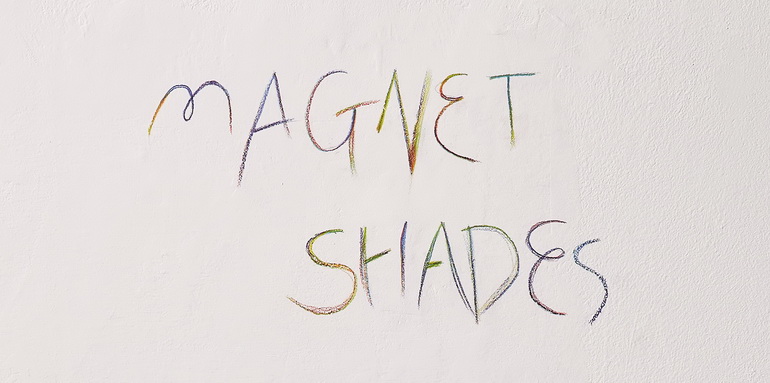 MAGNET
SHADES